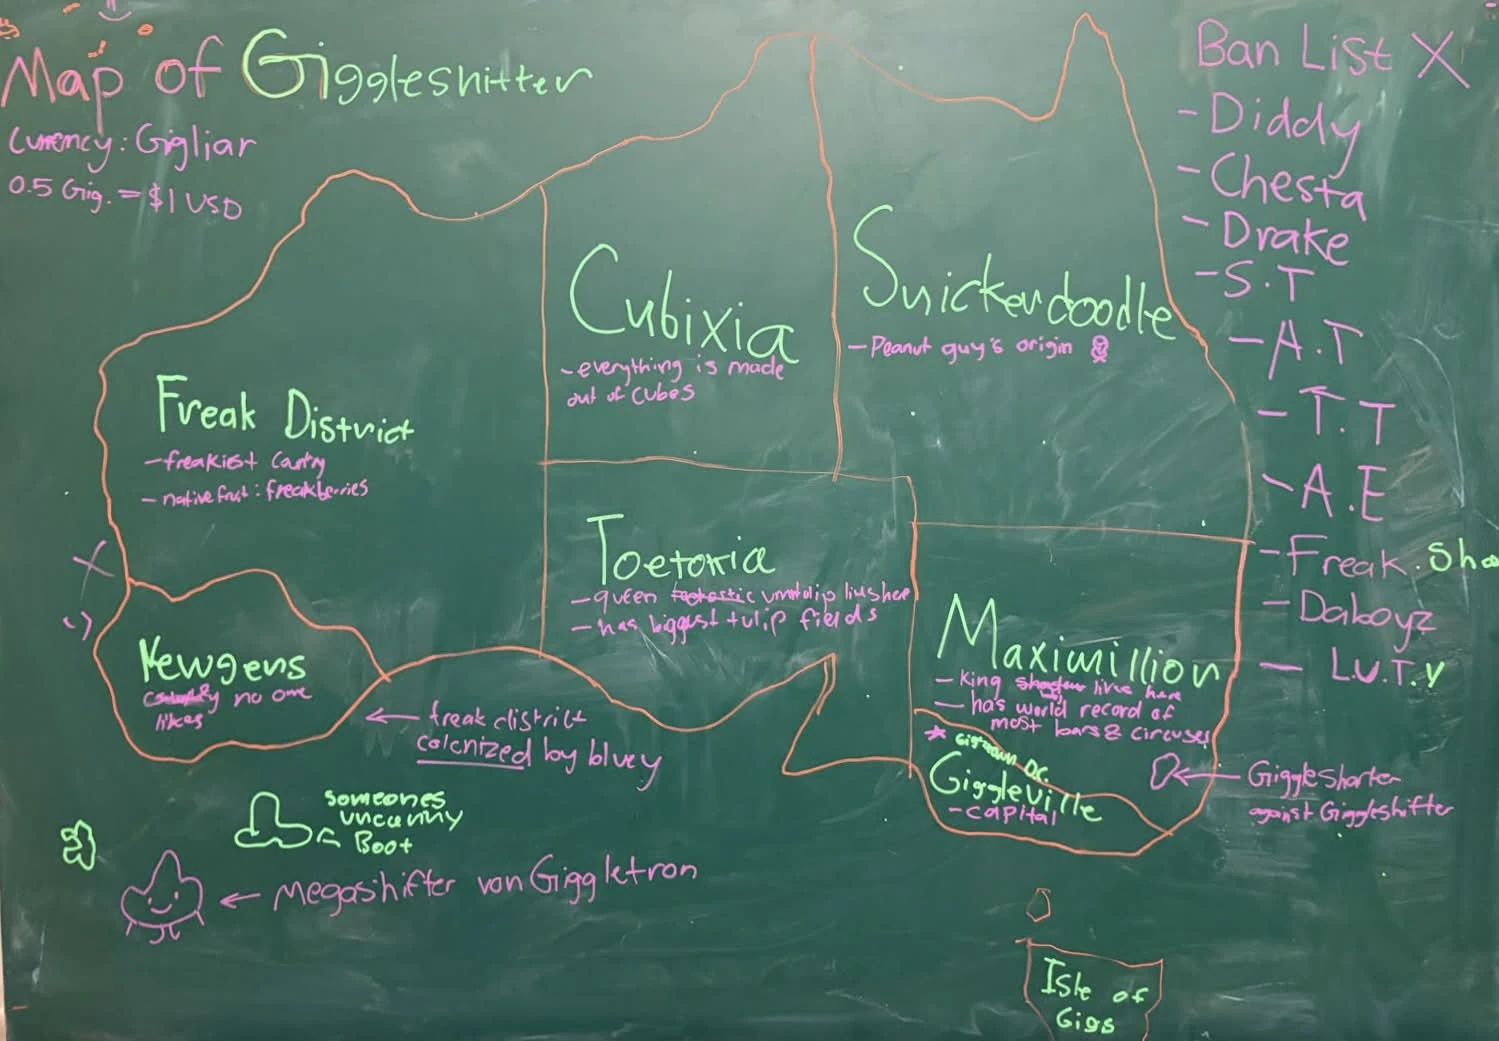 Map of Giggleshitter
Currency: Gigliar
0.5 Gig. = $1 USD
Ban List X
- Diddy
- Chesta
- Drake
- S.T
- A.T
- T.T
- A.E
- Freak. Sha
- Daboyz
- L.U.T.Y
Cubixia
- everything is made
out of cubes
Snickerdoodle
- Peanut guy's origin
Freak District
- freakist
- native fruit: freakberries
Toetoria
- queen
- has biggest tulip fields
Maximillion
- King lives here
- has world record of
most bars & circuses
Kewgens
no one
likes
← freak district
colonized by bluey
D.C.
Giggleville
- capital
← Giggleshorter
against Giggleshifter
someones
uncanny
Boot
← Megashifter von Giggletron
Isle of
Gigs